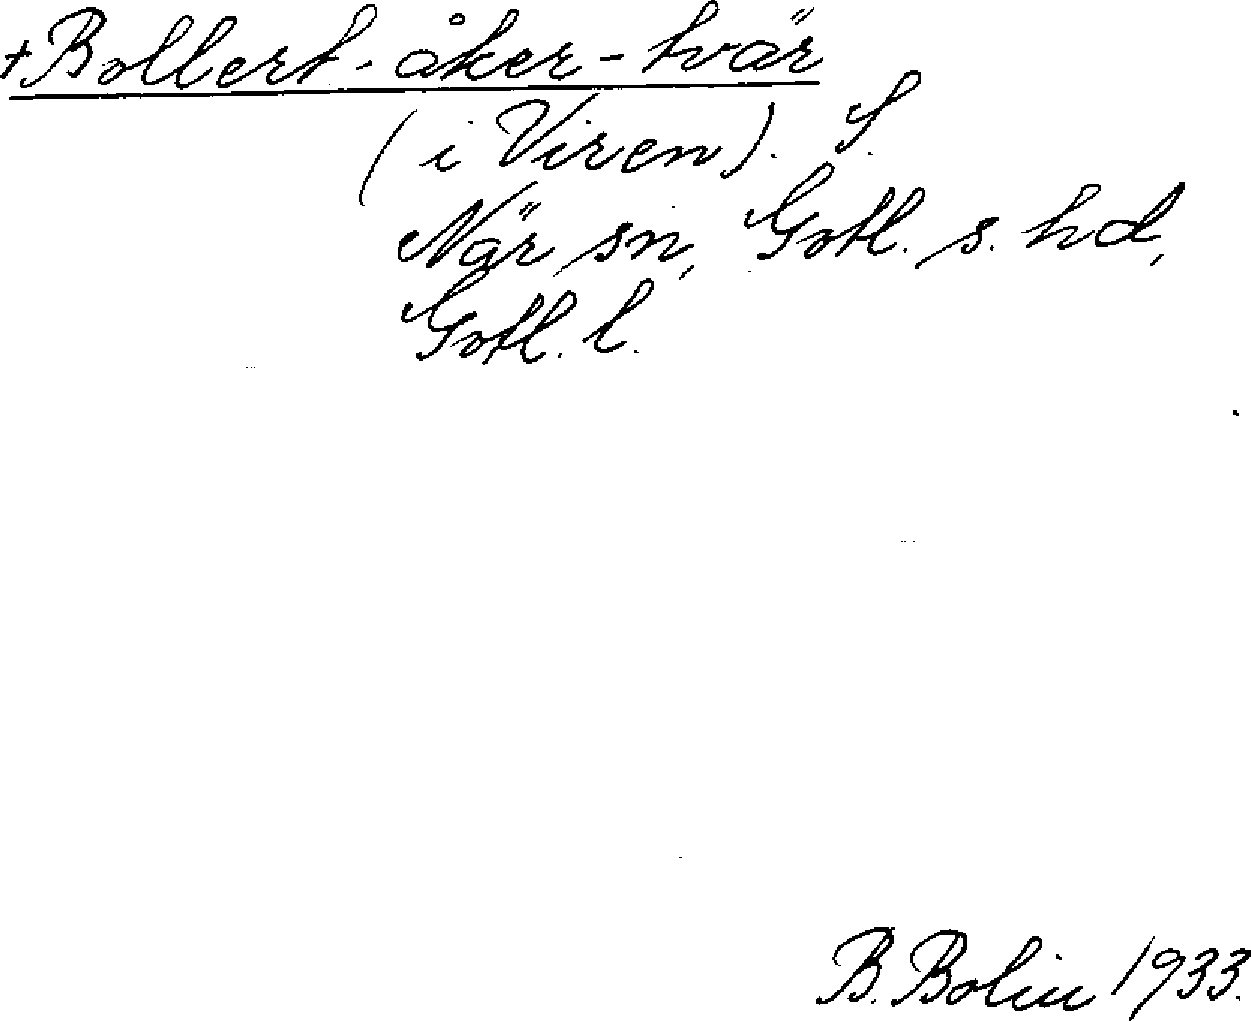 +Bollert-åker-tvär
(i Viren). S.
När sn, Gotl. s. hd,
Gotl. l.
B. Bolin 1933.